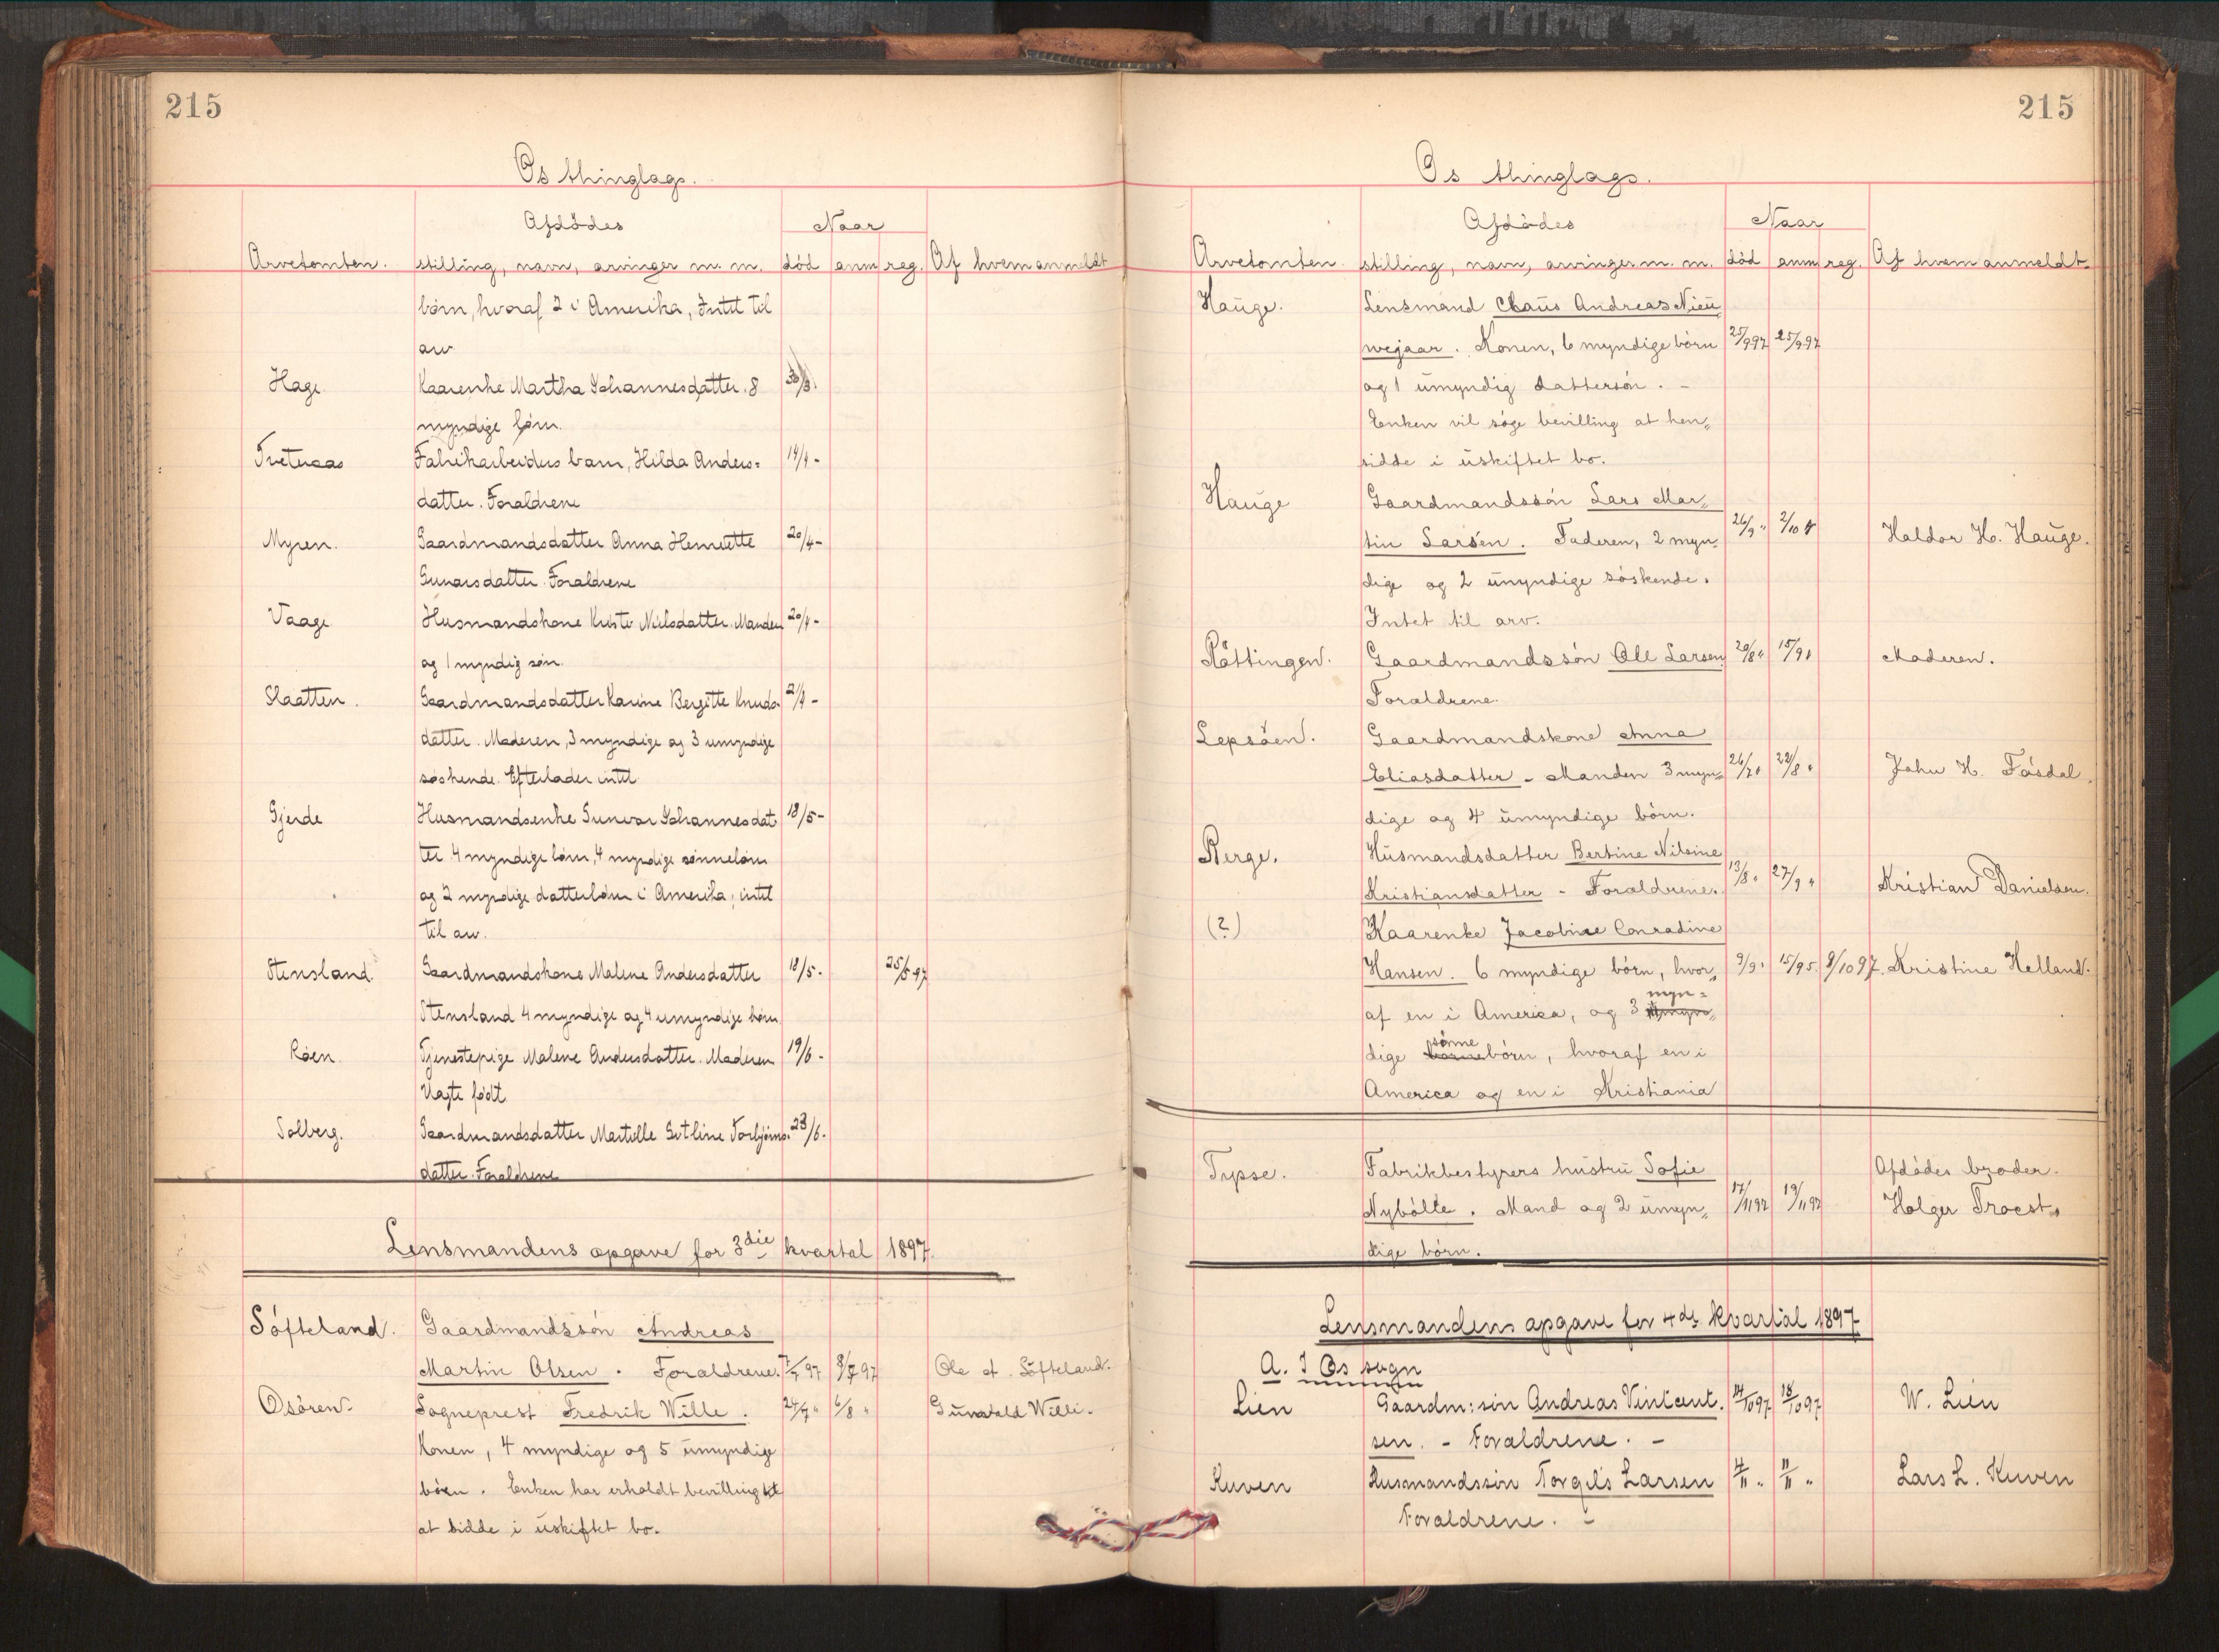 215
Os thinglags.
Afdödes
Naar
Arvetomten. stilling, navn, arvinger m. m. död anm reg. Af hvem anmeldt
börn, hvoraf 2 i Amerika, Intet til
arv
Hage. Kaarenke Martha Johannesdatter. 8 30/3.
myndige börn.
Tveteraas Fabrikarbeiders barn, Hilda Anders= 14/4 -
datter. Foraldrene
Myren. Gaardmandsdatter Anna Henriette 20/4 -
Gunarsdatter. Foraldrene
Vaage Husmandskone Kristi Nilsdatter. Manden 20/4 -
og 1 myndig søn.
Slaatten. Gaardmandsdatter Karine Bergitte Knuds- 2/4 -
datter. Moderen, 3 myndige og 3 umyndige
søskende. Efterlader intet
Gjerde Husmandsenke Gunvor Johannesdat 18/5 -
ter. 4 myndige börn, 4 myndige sønnebörn
og 2 myndige datterbörn i Amerika; intet
til arv.
Stensland. Gaardmandskone Malene Andersdatter 18/5. 25/6 97
Stensland 4 myndige og 4 umyndige börn.
Röen. Tjenestepige Malene Andersdatter. Moderen 19/6 -
Uagte født
Solberg. Gaardmandsdatter Martelle Setline Torbjörns- 23/6.
datter. Foraldrene
Lensmandens opgave for 3die kvartal 1897.
Söfteland. Gaardmandssön Andreas
Martin Olsen. Foraldrene. 7/7 97 8/7 97 Ole A. Söfteland.
Osören. Sogneprest Fredrik Wille. 24/7 " 6/8 " Gunvald Wille.
Konen, 4 myndige og 5 umyndige
börn. Enken har erholdt bevilling til
at sidde i uskiftet bo.
215
Os thinglags.
Afdödes
Naar
Arvetomten. stilling, navn, arvinger m. m. död anm reg. Af hvem anmeldt.
Hauge. Lensmand Claus Andreas Nieu
wejaar. Konen, 6 myndige börn 25/9 97 25/9 97
og 1 umyndig dattersön. -
Enken vil söge bevilling at hen„
sidde i uskiftet bo.
Hauge Gaardmandssön Lars Mar„
tin Larsen. Faderen, 2 myn„ 26/9 " 2/10 " Haldor H. Hauge.
dige og 2 umyndige söskende.
Intet til arv.
Röttingen. Gaardmandssön Ole Larsen 20/8 " 15/9 " Moderen.
Foraldrene.
Lepsöen. Gaardmandskone Anna
Eliasdatter - Manden 3 myn„ 26/7 " 22/8 " John H. Tösdal.
dige og 4 umyndige börn.
Berge. Husmandsdatter Bertine Nilsine
Kristiansdatter - Foraldrene. 13/8 " 27/9 " Kristian Danielsen.
(?) Kaarenke Jacobine Conradine
Hansen. 6 myndige börn, hvor„ 9/9 " 15/9 5. 9/10 97. Kristine Helland.
af en i America, og 3 myn=
dige sönne börn, hvoraf en i
America og en i Kristiania
Typse. Fabrikbestyrers hustru Sofie Afdödes broder.
Nybölle. Mand og 2 umyn„ 17/11 97 19/11 97 Holger Troest.
dige börn.
Lensmandens opgave for 4de kvartal 1897
A. I Os sogn
Lien Gaardm: sön Andreas Vincent. 14/10 97 18/10 97 W. Lien
sen. - Foraldrene. -
Kuven Husmandssön Torgils Larsen 4/11 " 11/11 " Lars L. Kuven
Foraldrene. -